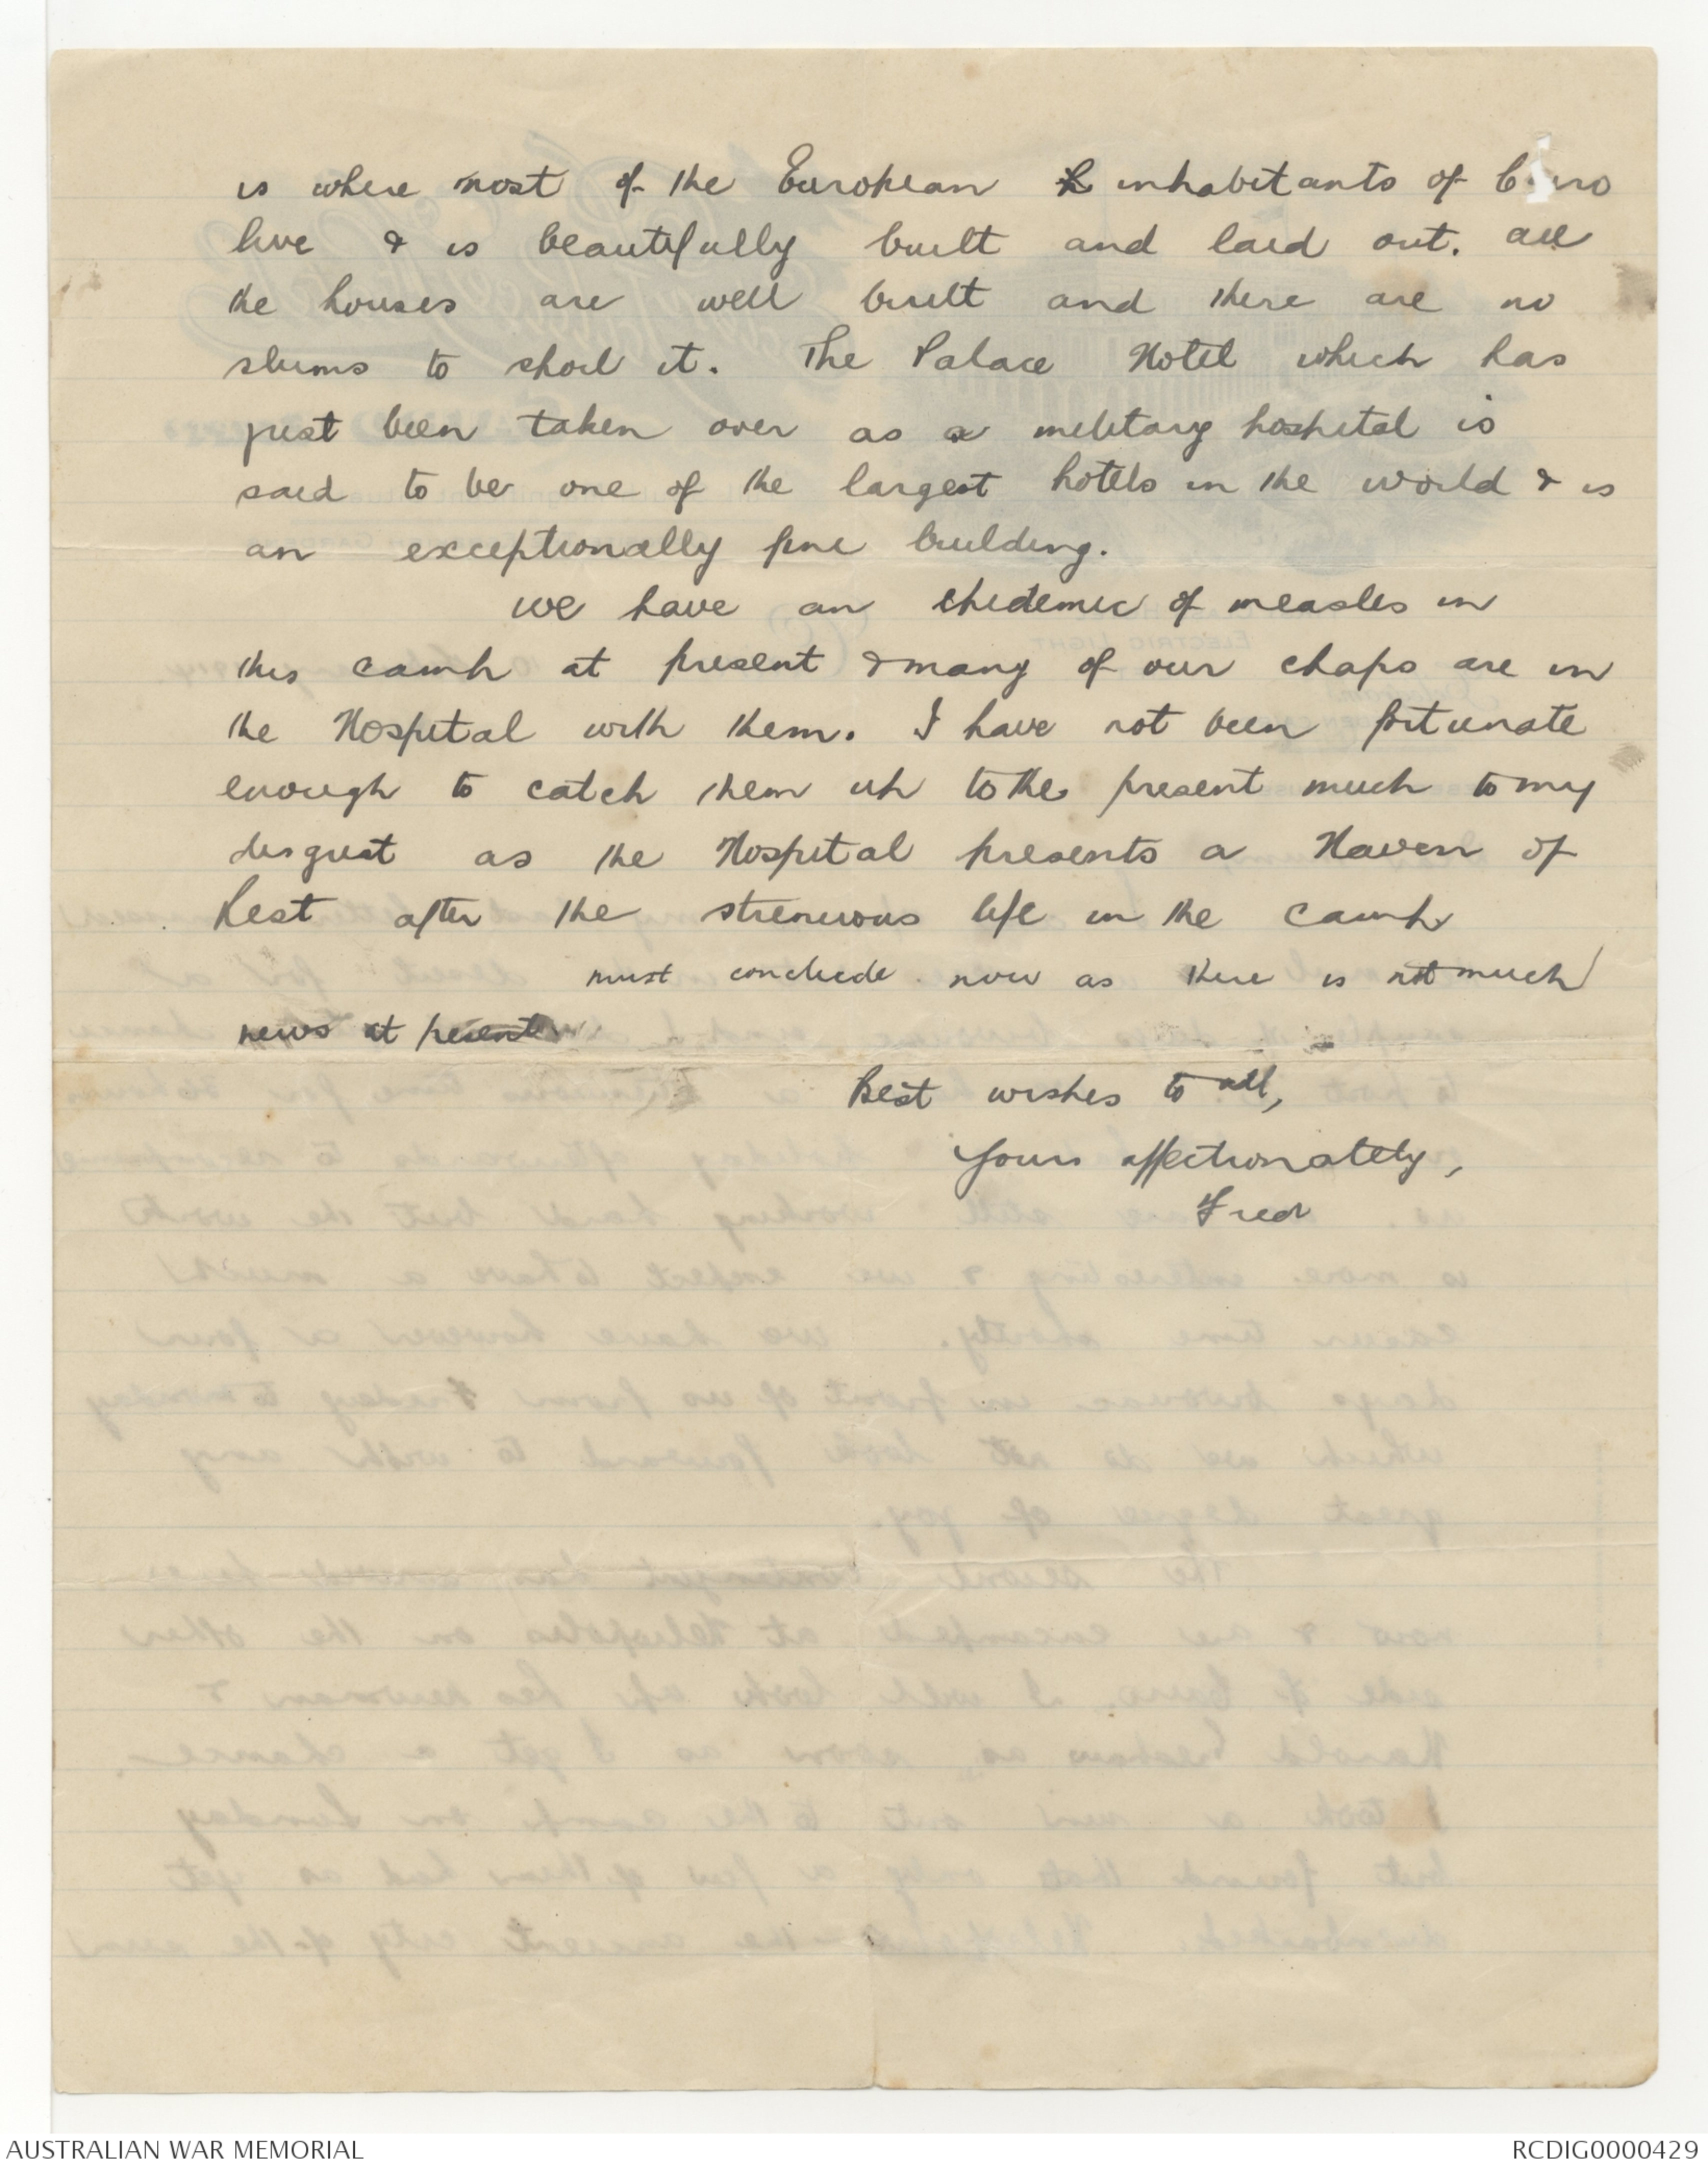 is where most of the European h inhabitants of Cairo
live & is beautifully built and laid out. all
the houses are well built and there are no
slums to spoil it. The Palace Hotel which has
just been taken over as a military hospital is
said to be one of the largest hotels in the world & is
an exceptionally fine building.
we have an epidemic of measles in
this camp at present & many of our chaps are in
the Hospital with them. I have not been fortunate
enough to catch them up to the present much to my
disgust as the Hospital presents a Haven of
Rest after the strenuous life in the camp
must conclude now as there is not much
news at present
Best wishes to all,
Yours affectionately,
Fred
AUSTRALIAN WAR MEMORIAL
RCDIG0000429